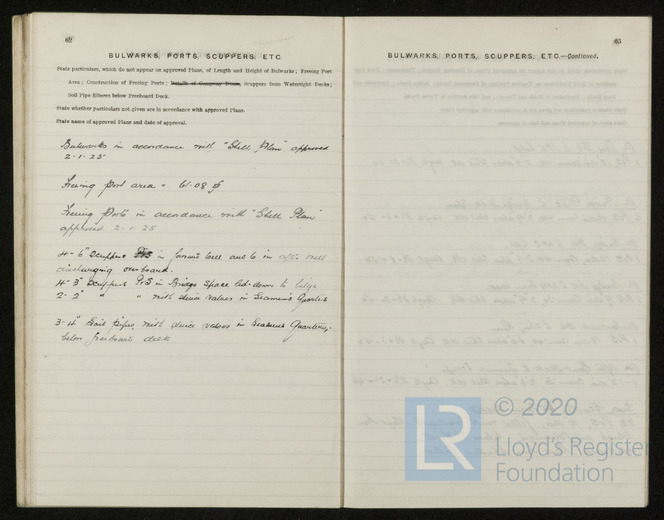 62
BULWARKS, PORTS, SCUPPERS, ETC.
State particulars, which do not appear on approved Plans, of Length and Height of Bulwarks; Freeing Port
Area; Construction of Freeing Ports; Details of Gangway Doors, Scuppers from Watertight Decks;
Soil Pipe Elbows below Freeboard Deck.
State whether particulars not given are in accordance with approved Plans.
State name of approved Plans and date of approval.
Bulwarks in accordance with "Shell Plan" approved
2.1.25
Freeing Port area = 61.08
Freeing Ports in accordance with "Shell Plan"
approved 2.1.25
4 - 6" Scuppers in forward well and 6 in after well
discharging overboard.
4 - 3" Scuppers P/S in Bridge space led down to bilge
2 - 2" " " with valves in Seamen's Quarters
3 - 4" Soil Pipes, with valves in Seamens Quarters,
below freeboard deck
63
BULWARKS, PORTS, SCUPPERS, ETC.—Continued.
© 2020
LR
Lloyd's Register
Foundation